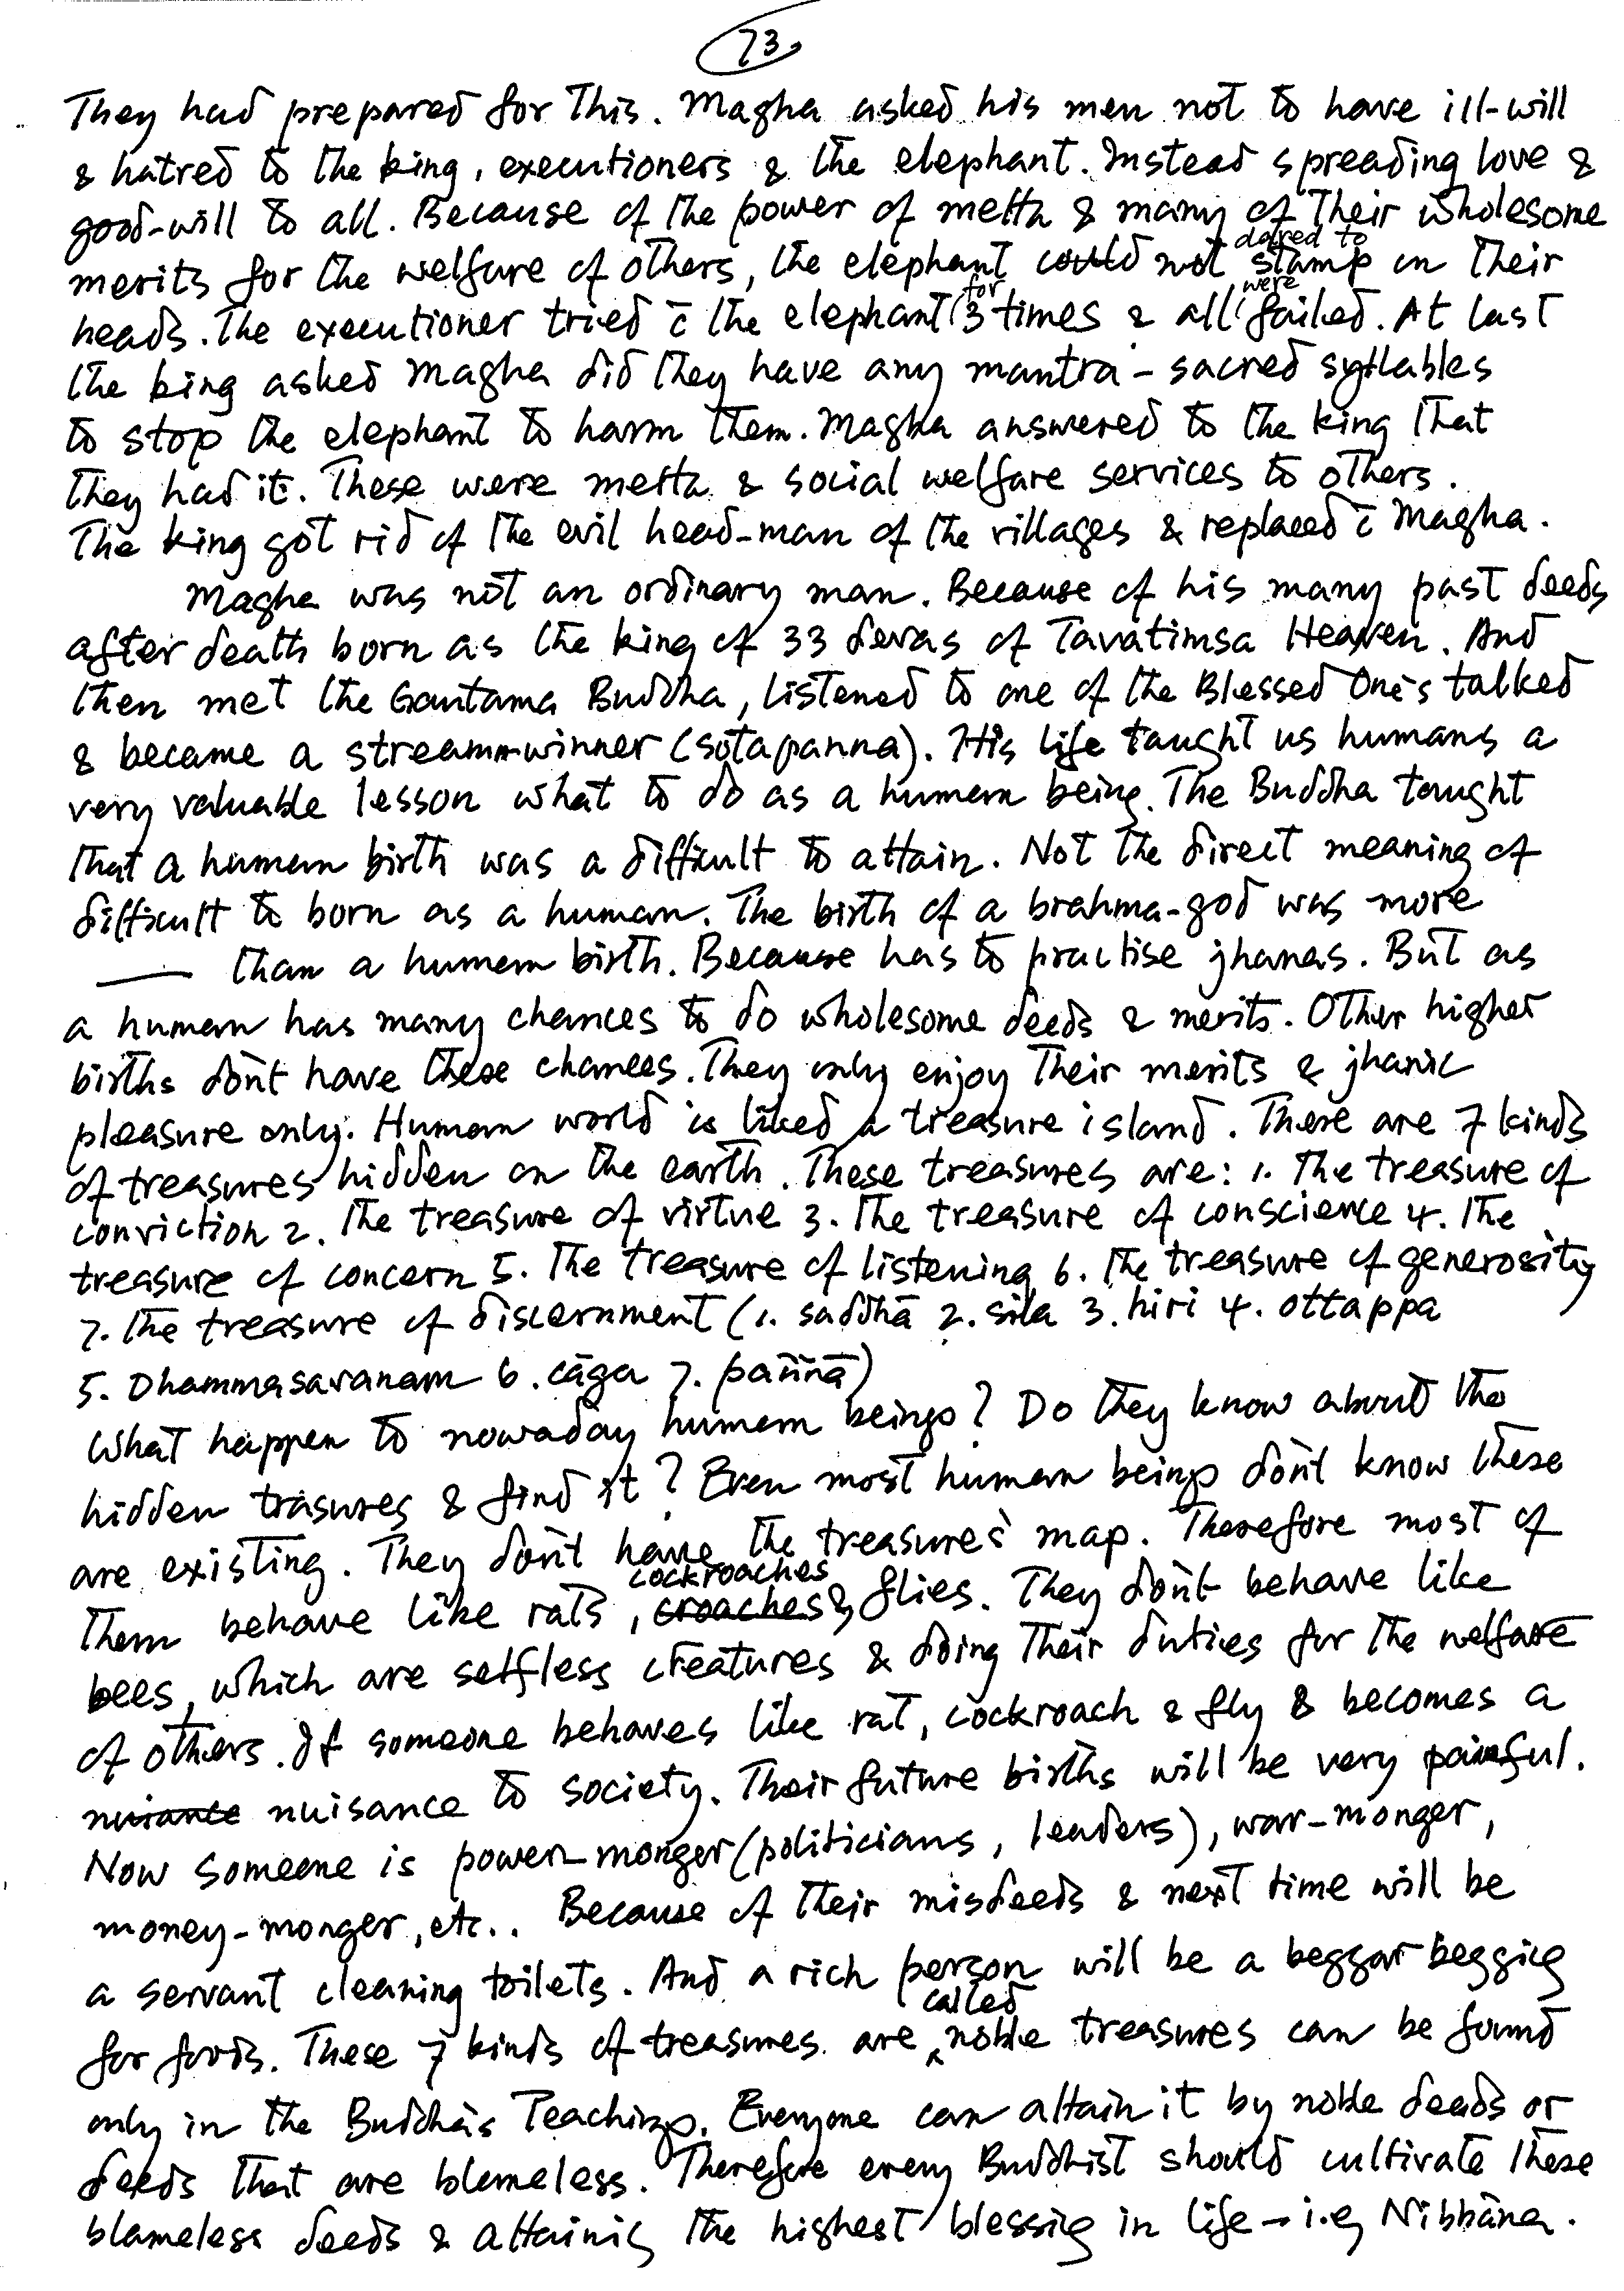 73.
They had prepared for this. Magha asked his men not to have ill-will
& hatred to the king, executioners & the elephant. Instead spreading love &
good-will to all. Because of the power of metta & many of their wholesome
merits for the welfare of others, the elephant could not dared to stamp on their
heads. The executioner tried c̄ the elephant for 3 times & all were failed. At last
the king asked Magha did they have any mantra – sacred syllables
to stop the elephant to harm them. Magha answered to the king that
they had it. These were metta & social welfare services to others.
The king got rid of the evil head-man of the villages & replaced c̄ Magha.
Magha was not an ordinary man. Because of his many past deeds
after death born as the king of 33 devas of Tavatimsa Heaven. And
then met the Gautama Buddha, listened to one of the Blessed One's talked
& became a stream-winner (sotapanna). His life taught us humans a
very valuable lesson what to do as a human being. The Buddha taught
that a human birth was a difficult to attain. Not the direct meaning of
difficult to born as a human. The birth of a brahma-god was more
—— than a human birth. Because has to practise jhanas. But as
a human has many chances to do wholesome deeds & merits. Other higher
births don't have these chances. They only enjoy their merits & jhanic
pleasure only. Human world is liked a treasure island. There are 7 kinds
of treasures hidden on the earth. These treasures are: 1. The treasure of
conviction 2. The treasure of virtue 3. The treasure of conscience 4. The
treasure of concern 5. The treasure of listening 6. The treasure of generosity
7. The treasure of discernment (1. saddhā 2. sila 3. hiri 4. ottappa
5. Dhammasavanam 6. cāga 7. paññā)
What happen to nowaday human beings? Do they know about the
hidden trasures & find it? Even most human beings don't know these
are existing. They don't have the treasures' map. Therefore most of
them behave like rats, cockroaches & flies. They don't behave like
bees, which are selfless creatures & doing their duties for the welfare
of others. If someone behaves like rat, cockroach & fly & becomes a
nuisance to society. Their future births will be very painful.
Now someone is power-monger (politicians, leaders), war-monger,
money-monger, etc.. Because of their misdeeds & next time will be
a servant cleaning toilets. And a rich person will be a beggar begging
for foods. These 7 kinds of treasures are called noble treasures can be found
only in the Buddha's Teachings. Everyone can attain it by noble deeds or
deeds that are blameless. Therefore every Buddhist should cultivate these
blameless deeds & attaining the highest blessing in life – i.e, Nibbāna.